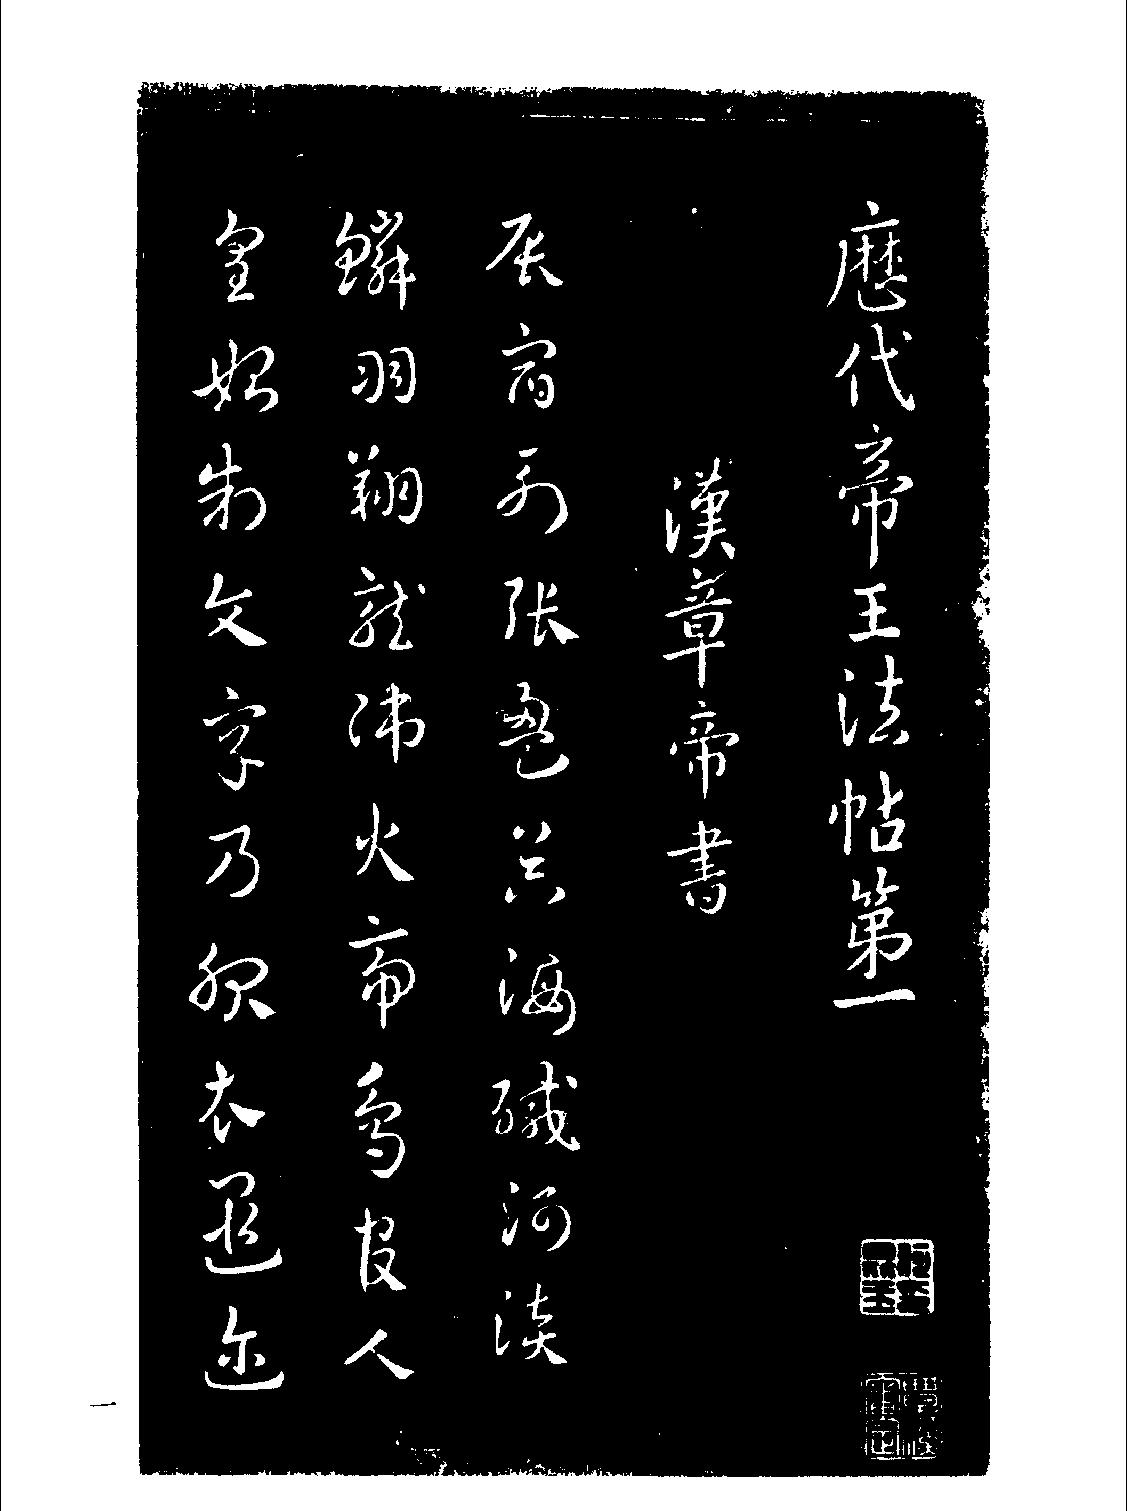 歷代帝王法帖第一
漢章帝書
辰宿列張海鹹河淡
鱗羽翔龍師火帝鳥官人
皇始制文字乃服衣遐迩
一